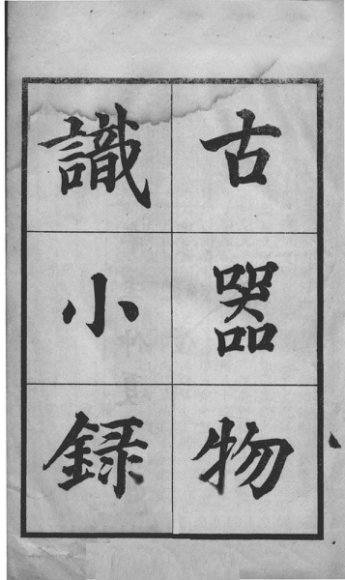 古器物
識小録